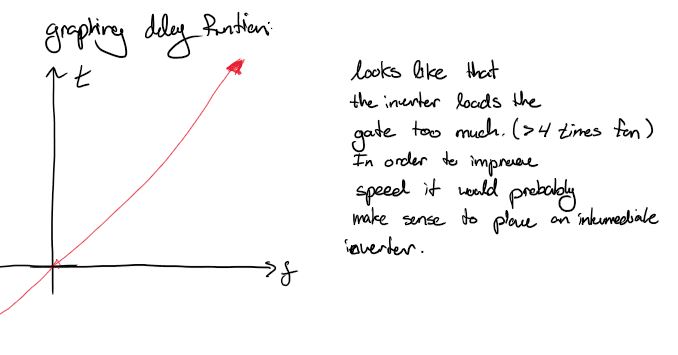 graphing delay function:
t
f
looks like that
the inverter loads the
gate too much. (>4 times fan)
In order to improve
speed it would probably
make sense to place an intermediate
inverter.